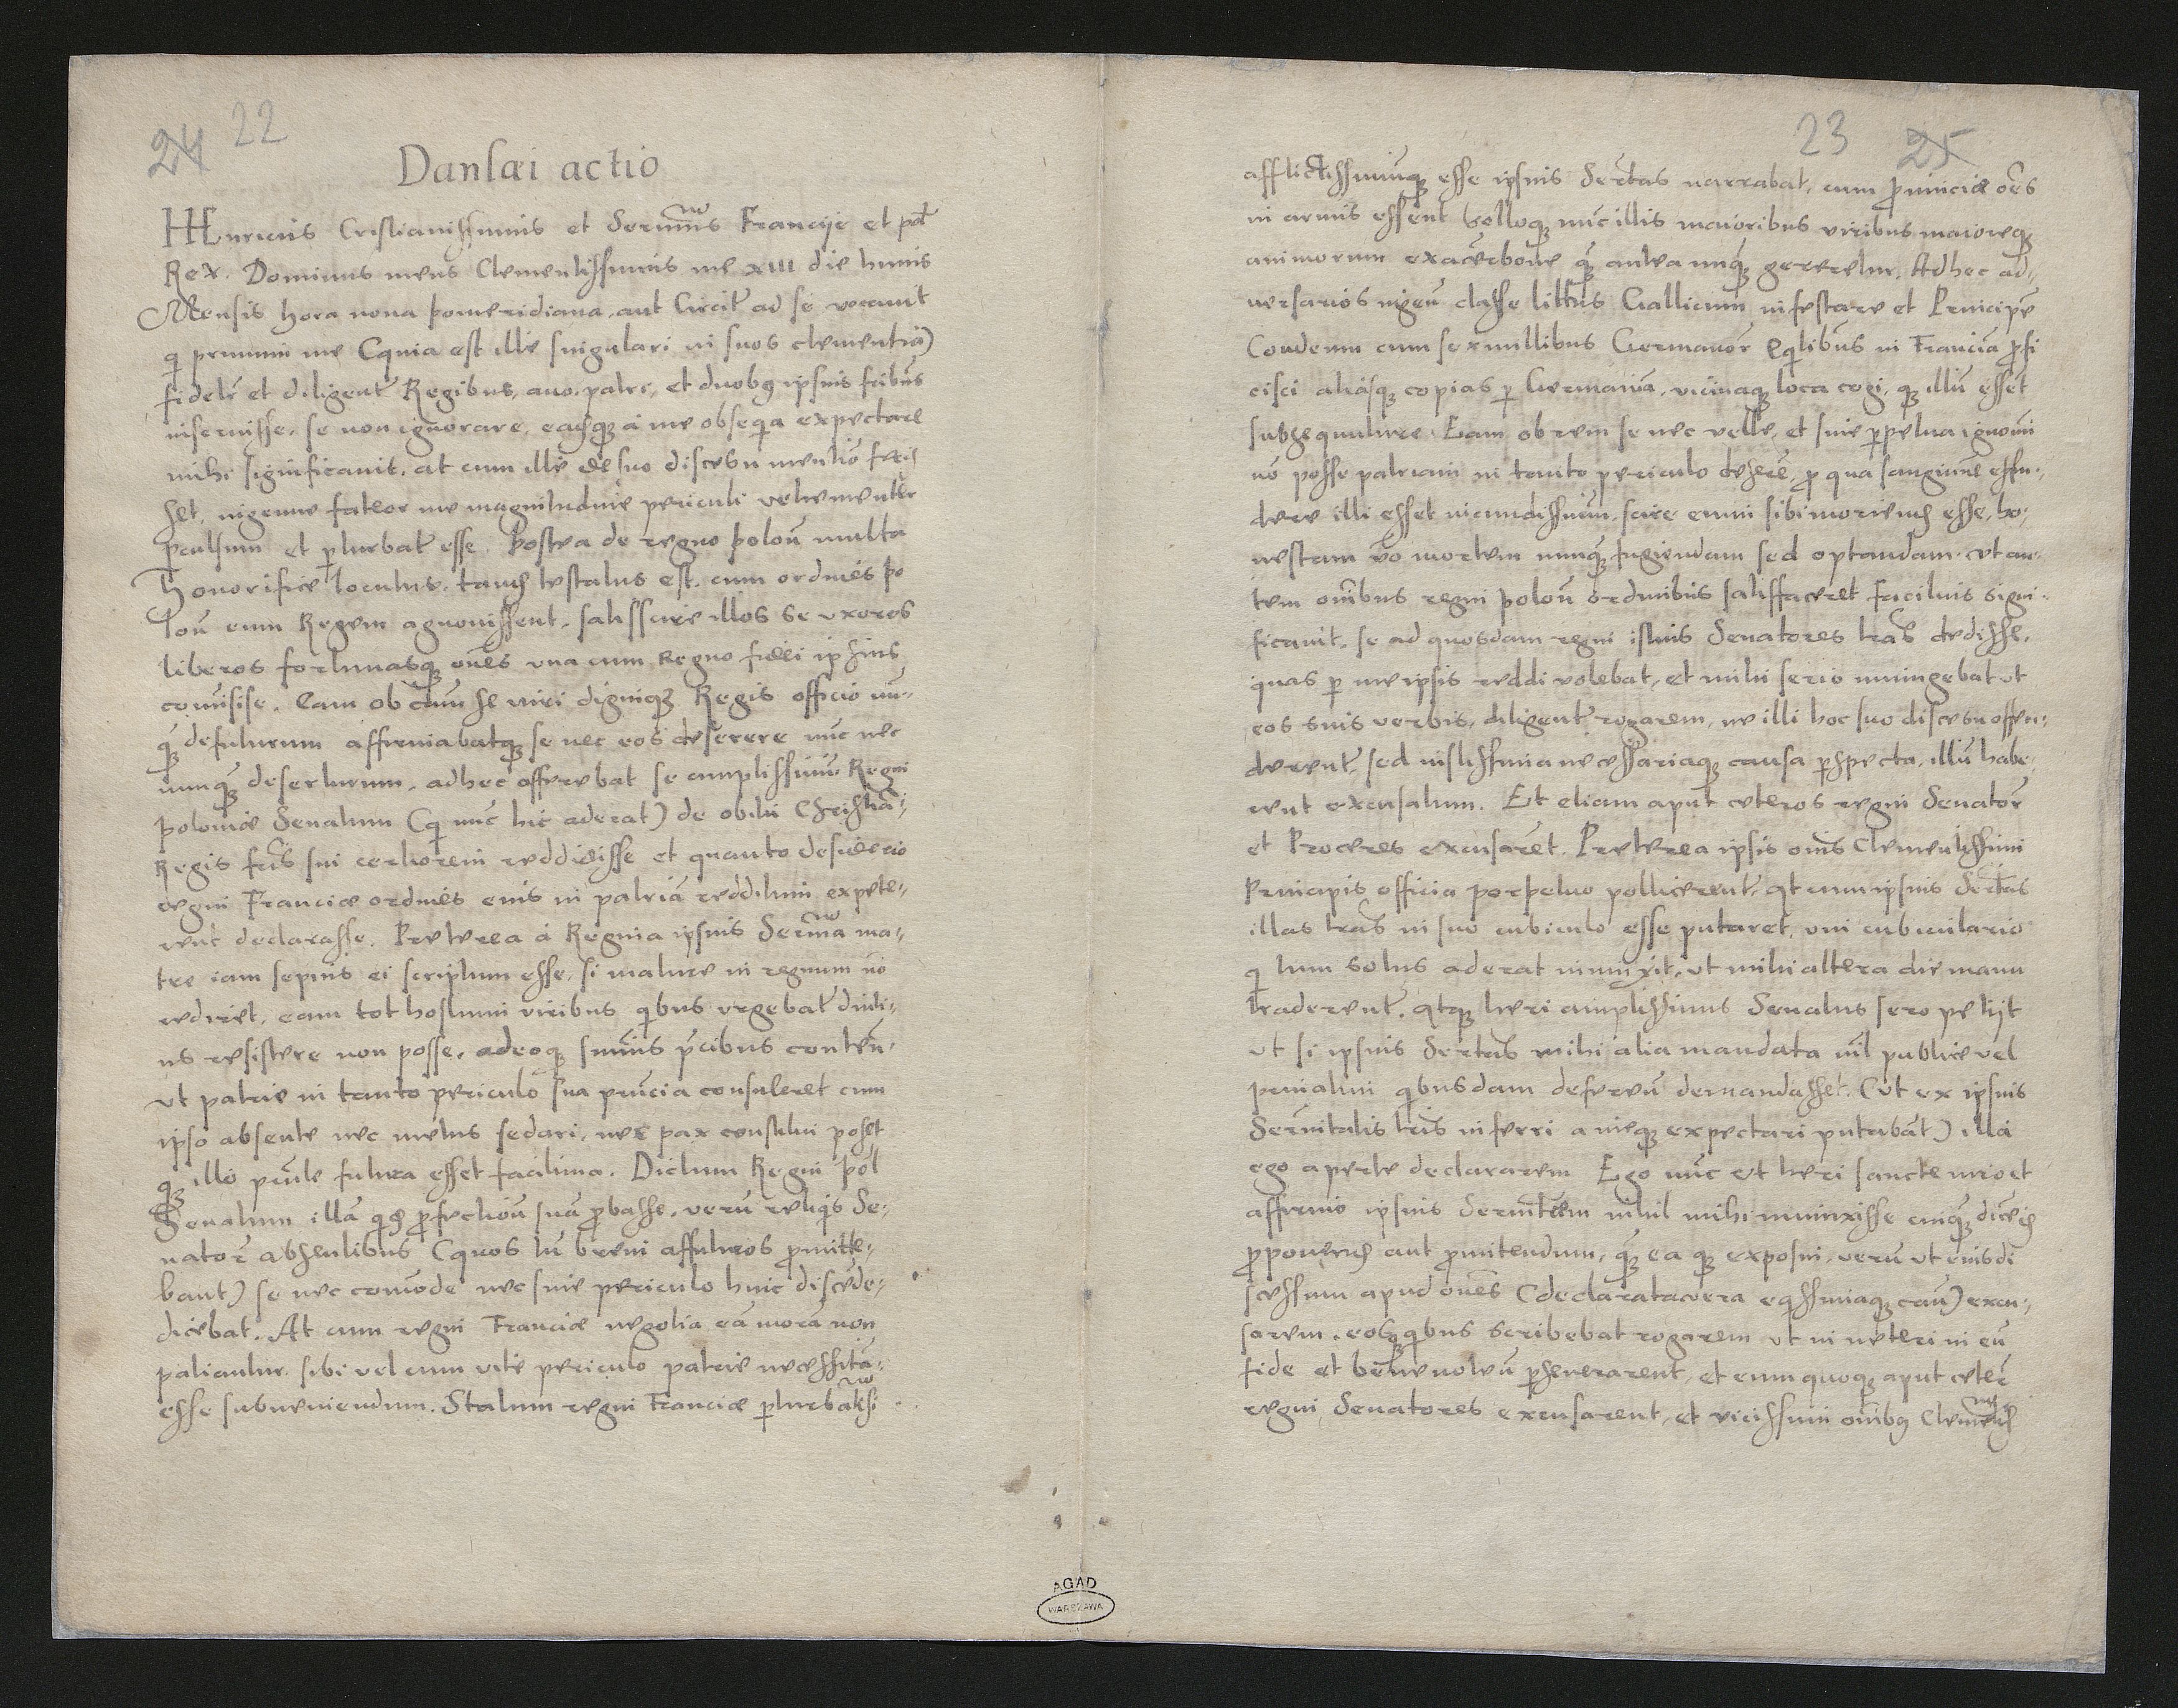 24 22
Dansæi actio
HEnricus Cristianissimus et Sermus Franciȩ et pol
Rex. Dominus meus Clementissimus me XIII die huius
Mensis hora nona pomeridiana, aut Circit ad se vocauit
q primum me (quia est ille singulari in suos clementia)
fidelr et diligent Regibus, auo, patri, et duobq ipsius fribus
inseruisse, se non ignorare, eaqz à me obseqia expectare
mihi significauit. at cum ille de suo discesu mentio fecis
set, ingenue fateor me magnitudine periculi vehementer
pculsum et pturbat esse. Postea de regno polon multa
Honorifice locutus, testatus est, cum ordines po
lon eum Regem agnouissent, satis scire illos se vxores
liberos fortunasqz omes vna cum Regno fidei ipsius
comisise. Eam ob cam se viri digniqz Regis officio nu-
qz defuturum affirmabatqz se nec eos deserere nuc nec
nunqz deserturum. adhec offerebat se amplissimu Regni
Poloniæ Senatum (q nuc hic aderat) de obitu Christia-
Regis fris sui certiorem reddidisse et quanto desiderio
regni Franciæ ordines eius in patria redditum expete-
rent declarasse. Preterea á Regina ipsius Serma ma-
tre iam sepius ei scriptum esse, si mature in regnum no
rediret, eam tot hostium viribus qibus vrgebat diuti-
us resistere non posse, adeoqz sumis pcibus conten-
vt patrie in tanto periculo sua prncia consuleret cum
ipso absente nec metus sedari, nec pax constitui poset
qz illo pnte futura esset facilima. Dictum Regni pol
Senatum illa profectiou sua pbasse, veru reliqis Se-
nator absentibus (quos tu breui affuturos pmitte-
bant) se nec comode nec sine periculo hinc discede-
dicebat. At cum regni Franciæ negotia ea mora non
patiantur sibi vel cum vite periculo patrie necessita-
esse subueniendum. Statum regni Franciæ pturbatisi
23 25
afflictissimuqz esse ipsius Sertas narrabat, cum puinciæ oes
in armis essent belloqz nuc illis maioribus viribus maioreqz
animorum exacerbone qz antea nuqz gereretur. Adhec ad-
uersarios ingen classe littus Gallicum infestare et Principe
Condeum cum sex millibus Germanor Eqitibus in Francia pfi
cisci aliasqz copias p Germania, vicinaqz loca cogi, qz illu essent
subsequuture. Eam ob rem se nec velle, et sine ppetua ignomi
no posse patriam in tanto periculo deserere, p qua sanguine effu-
dere illi esset iucundissimu, scire enim sibi moriend esse, ho-
nestam vo mortem nunqz fugiendam sed optandam. vt au-
tem omibus regni polon ordinibus satisfaceret facilius signi-
ficauit, se ad quosdam regni istius Senatores tras dedisse,
quas p me ipsis reddi volebat, et mihi serio iniungebat vt
eos suis verbis, diligent rogarem, ne illi hoc suo discesu offen-
derent, sed iustissima necessariaqz causa pspecta, illu habe-
rent excusatum. Et etiam aput ceteros regni Senator
et Proceres excusaret. Preterea ipsis omis Clementissimi
Principis officia perpetuo pollicerent, at cum ipsius Sertas
illas tras in suo cubiculo esse putaret, vni cubiculario
q tum solus aderat iniunxit, vt mihi altera die manu
traderent. atqz heri amplissimus Senatus sero petijt
vt si ipsius Sertas mihi alia mandata vel publice vel
priuatim qibusdam deferen demandasset. (vt ex ipsius
Serenitatis tris inferri a meqz expectari putabat) illa
ego aperte declararem Ego nuc et heri sancte iuro et
affirmo ipsius Sernitem nihil mihi iniunxisse cuiqz dicend
pponend aut pmitendum, qz ea qz exposui, veru vt eius di
scessum apud omes (declarata vera eqissimaqz cau) excu-
sarem, eosqz qibus scribebat rogarem vt in veteri in eu
fide et beneuolen pseuerarent, et eum quoqz aput ceter
regni Senatores excusarent, et vicissim omibq
AGAD
WARSZAWA